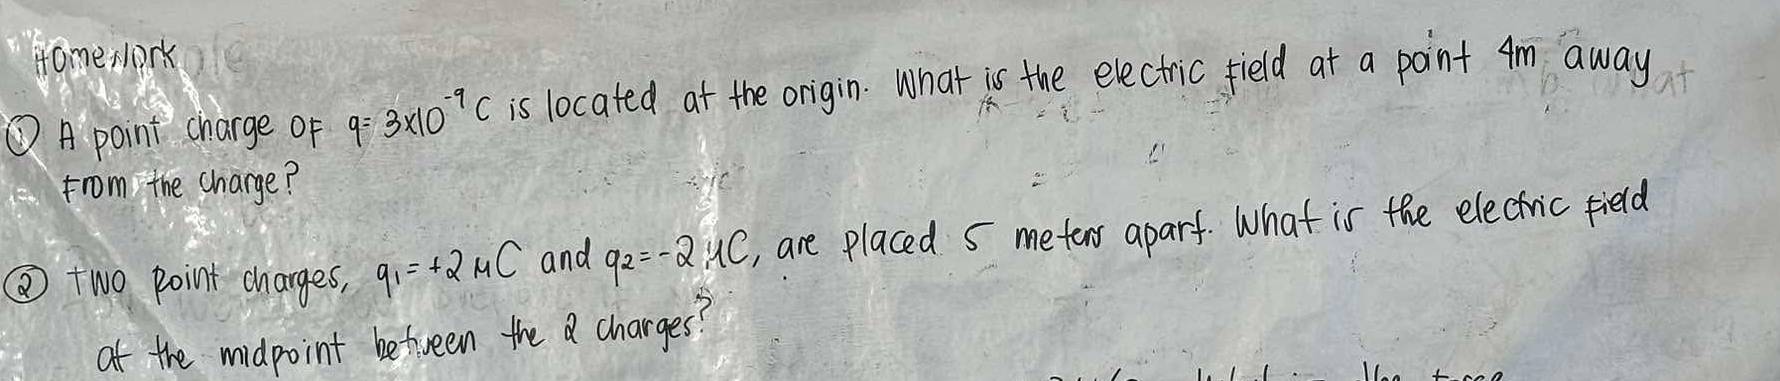 Homework
① A point charge of q= 3x10⁻⁹ C is located at the origin. What is the electric field at a point 4m away
from the charge?
② Two point charges, q₁= +2 μC and q₂= -2 μC, are placed 5 meters apart. What is the electric field
at the midpoint between the 2 charges?